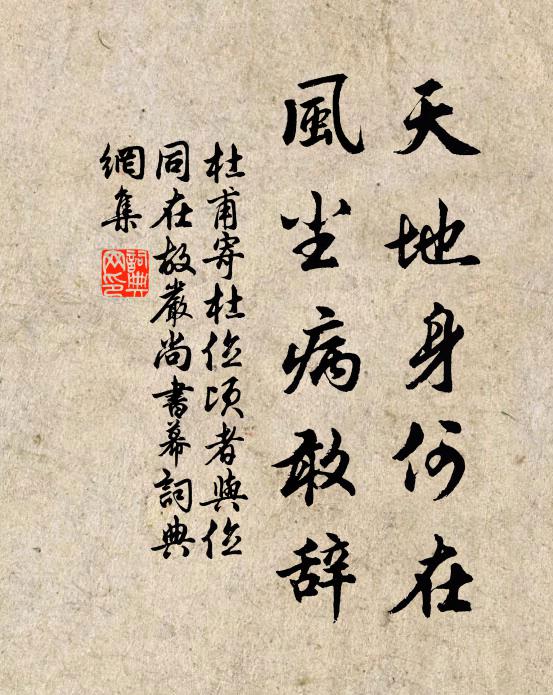 天地身何在
風尘病敢辞
杜甫寄杜位頃者與位
同在故嚴尚書幕詞典
網集
詞典
网印